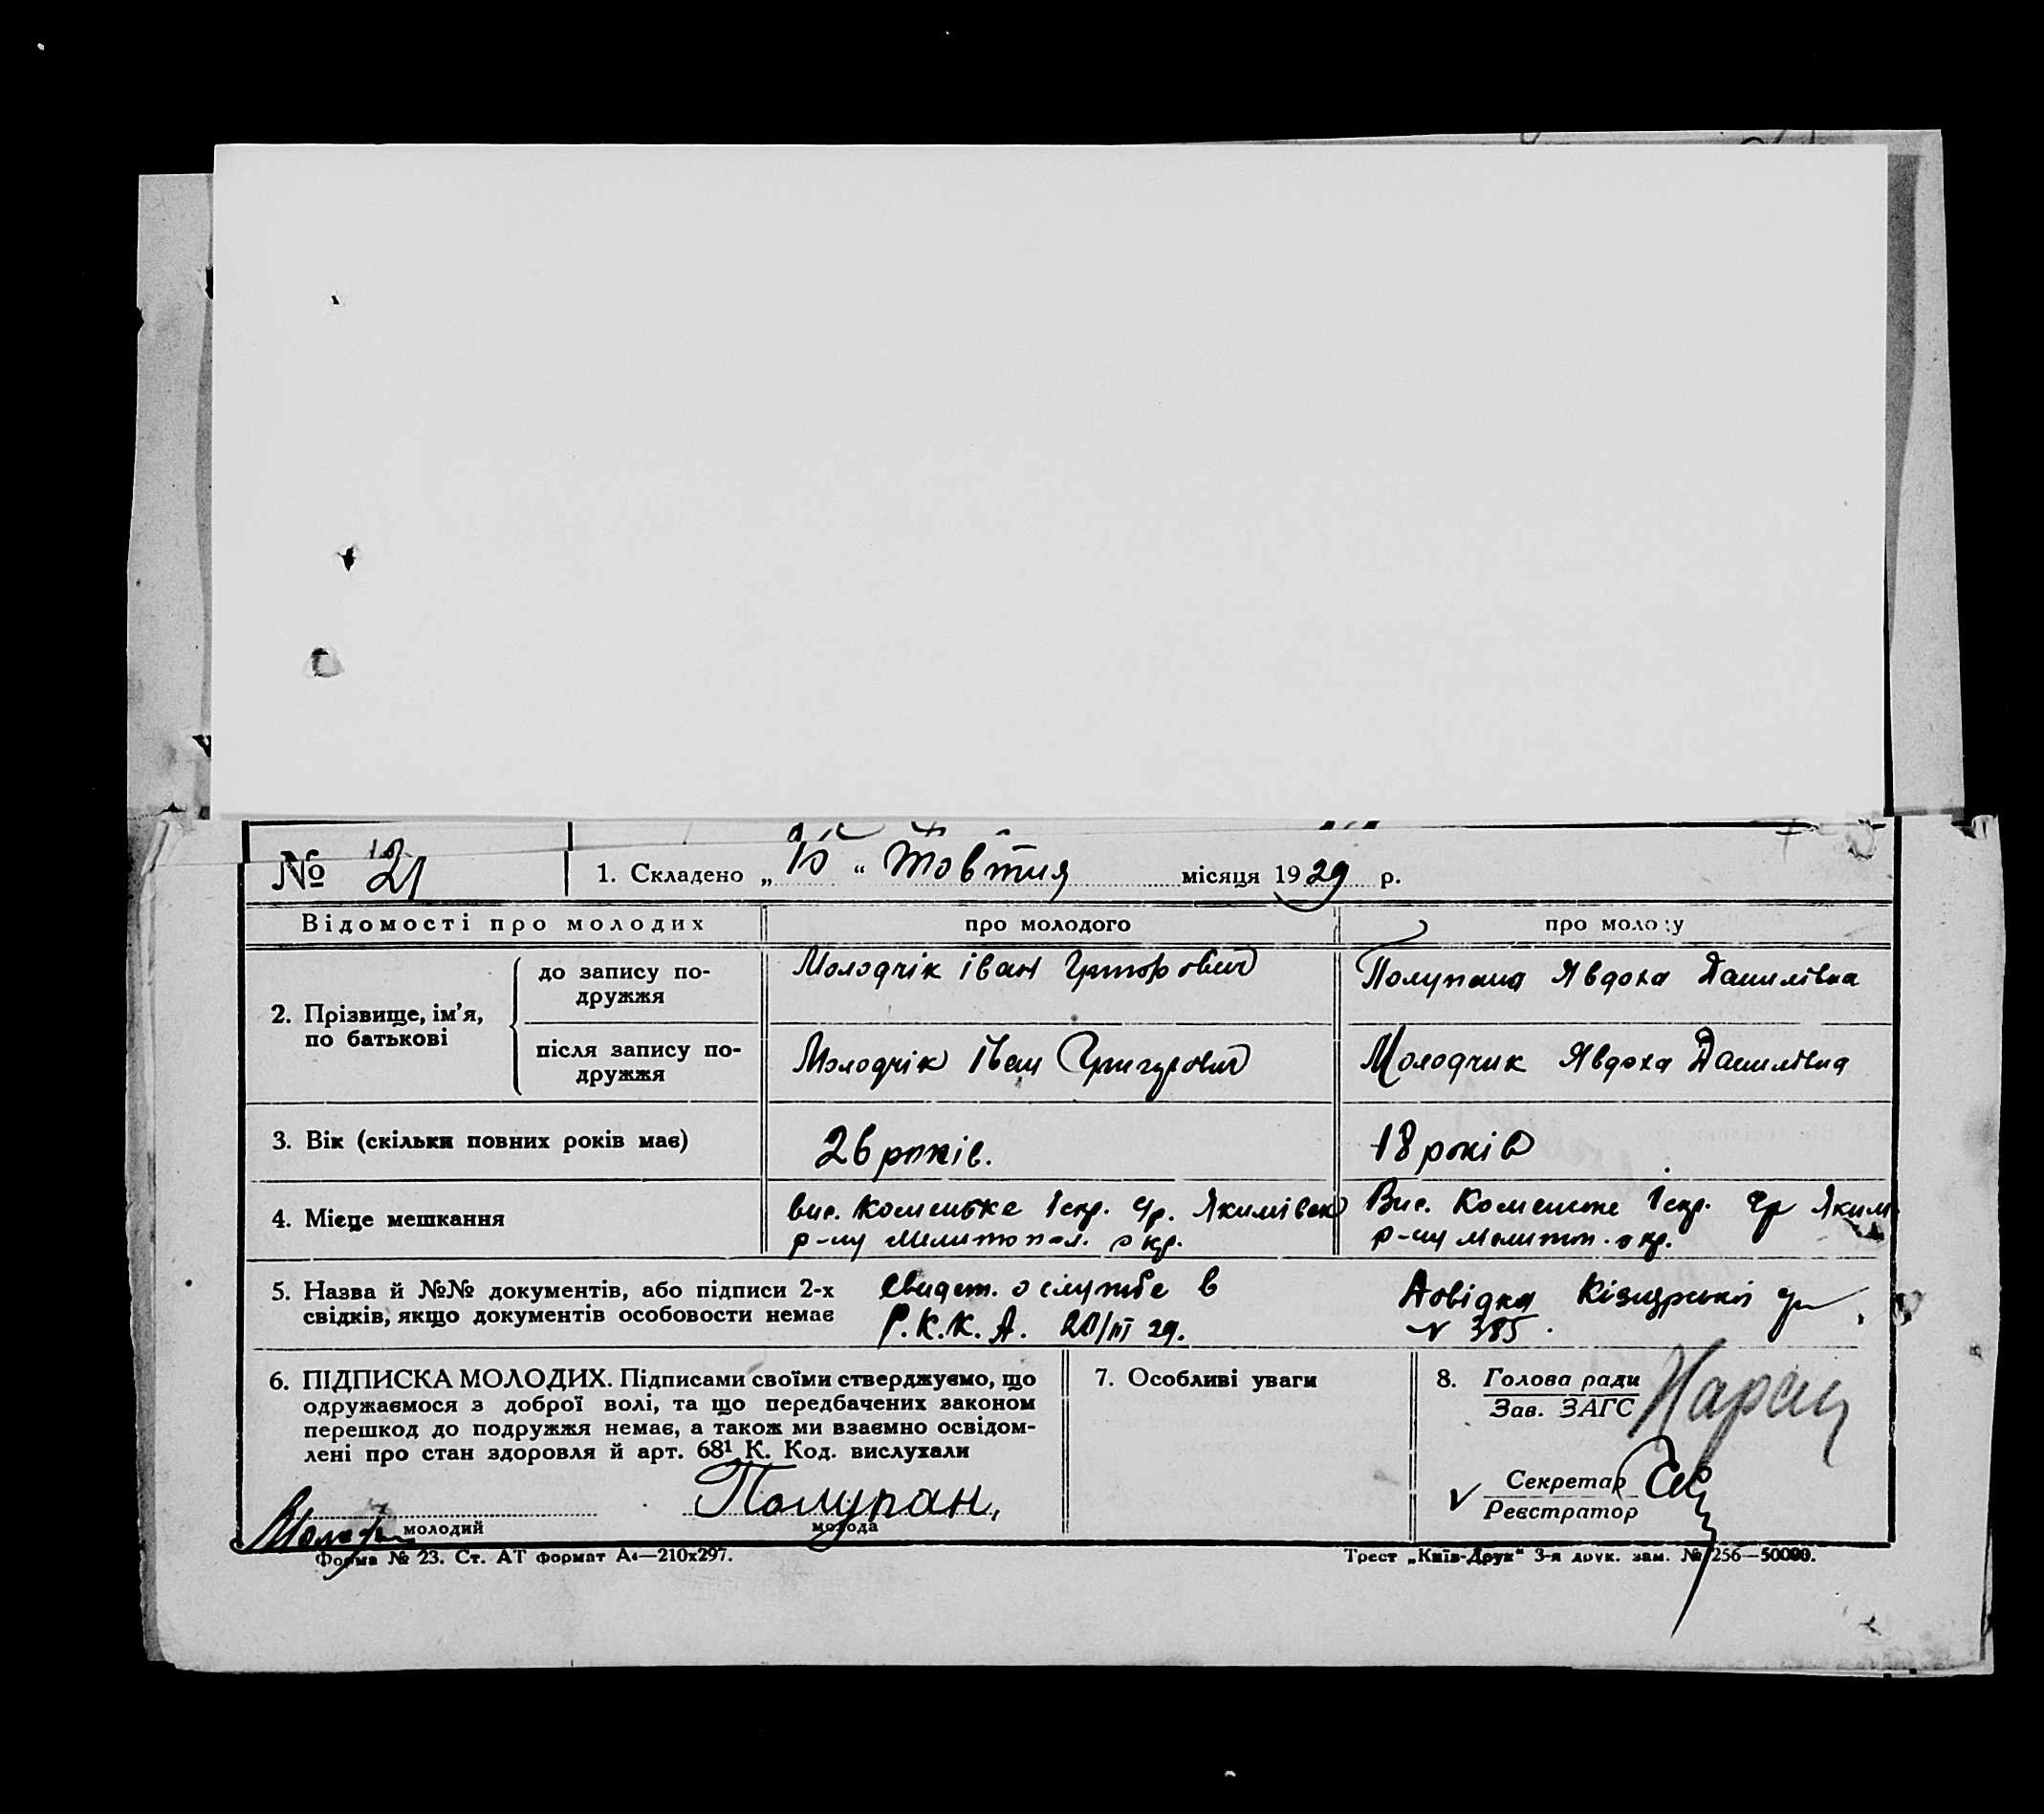 № 21
1. Складено „ 10 “ Жовтня місяця 1929 р.
Відомості про молодих
про молодого
про молоду
2. Прізвище, ім’я, по батькові
до запису подружжя
Молодчік Іван Григорович
Полупана Явдоха Данилівна
після запису подружжя
Молодчік Іван Григорович
Молодчик Явдоха Данилівна
3. Вік (скільки повних років має)
26 років.
18 років
4. Місце мешкання
вис. р-ну Мелитопол. окр.
Вис. р-ну Мелитоп. окр.
5. Назва й №№ документів, або підписи 2-х
свідків, якщо документів особовости немає
Свидет. о службе в
Р.К.К.А. 20/III 29.
Довідка
N 385.
6. ПІДПИСКА МОЛОДИХ. Підписами своїми стверджуємо, що
одружаємося з доброї волі, та що передбачених законом
перешкод до подружжя немає, а також ми взаємно освідом-
лені про стан здоровля й арт. 68¹ К. Код. вислухали
Полупан,
молодий
молода
7. Особливі уваги
8. Голова ради
Зав. ЗАГС
Секретар
Реєстратор
Форма № 23. Ст. АТ формат А₄—210х297.
Трест „Київ-Друк“ 3-я друк. зам. № 256—50000.